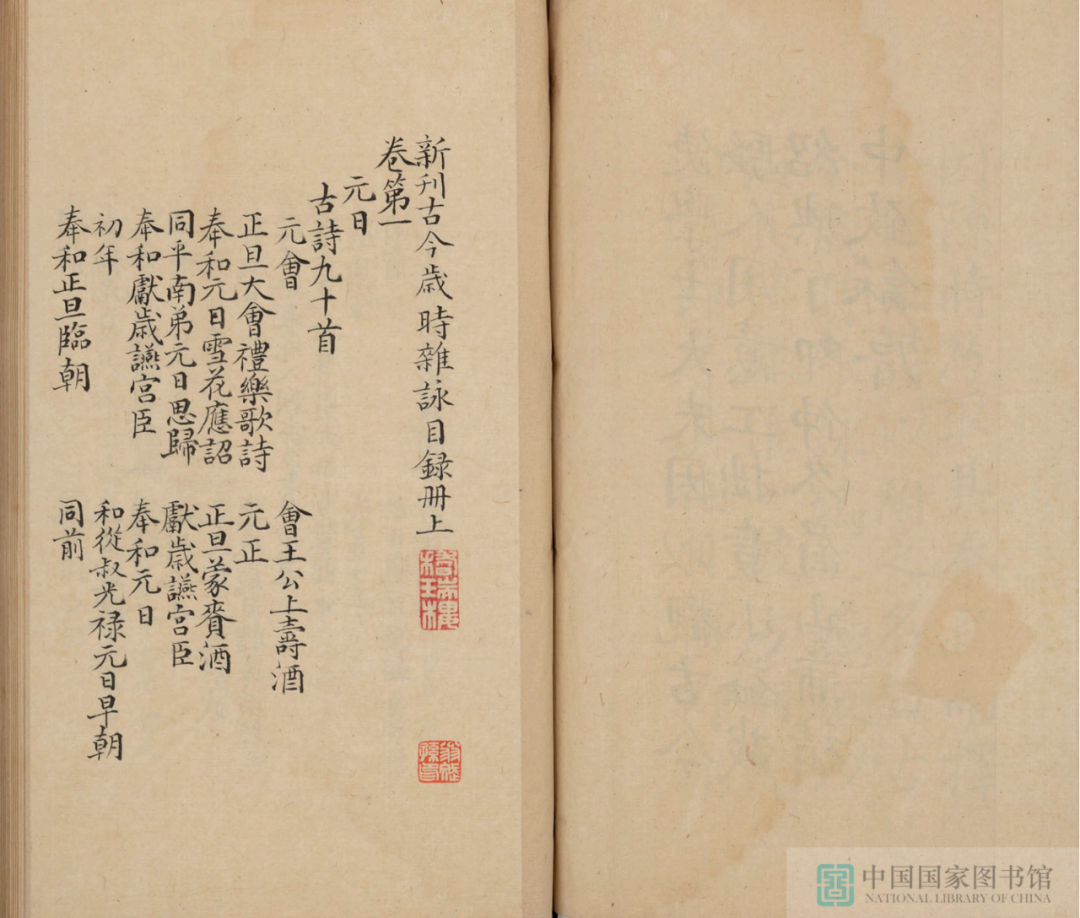 新刊古今歲時雜詠目錄冊上
卷第一
元日
古詩九十首
元會
會王公上壽酒
正旦大會禮樂歌詩
元正
奉和元日雪花應詔
正旦蒙賚酒
同平南弟元日思歸
獻歲讌宮臣
奉和獻歲讌宮臣
奉和元日
初年
和從叔光祿元日早朝
奉和正旦臨朝
同前
中国国家图书馆
NATIONAL LIBRARY OF CHINA